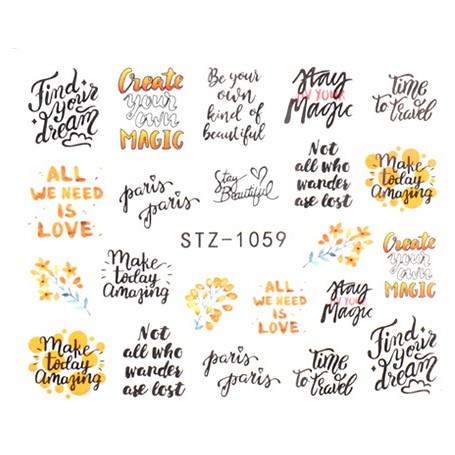 Find
your
dream
Create
your
own
MAGIC
Be your
own
kind of
beautiful
Stay
IN YOUR
Magic
Time
to Travel
ALL
WE NEED
IS
LOVE
paris
paris
Stay
Beautiful
Not
all who
wander
are lost
Make
today
Amazing
STZ-1059
Make
today
Amazing
ALL
WE NEED
IS
LOVE
Stay
IN YOUR
Magic
Create
your
own
MAGIC
Make
today
Amazing
Not
all who
wander
are lost
paris
paris
Time
to Travel
Find
your
dream